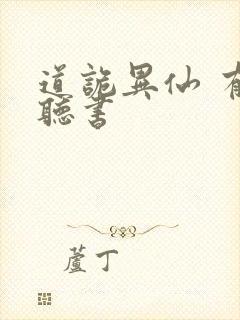 道詭異仙 有
聽書
蘆丁